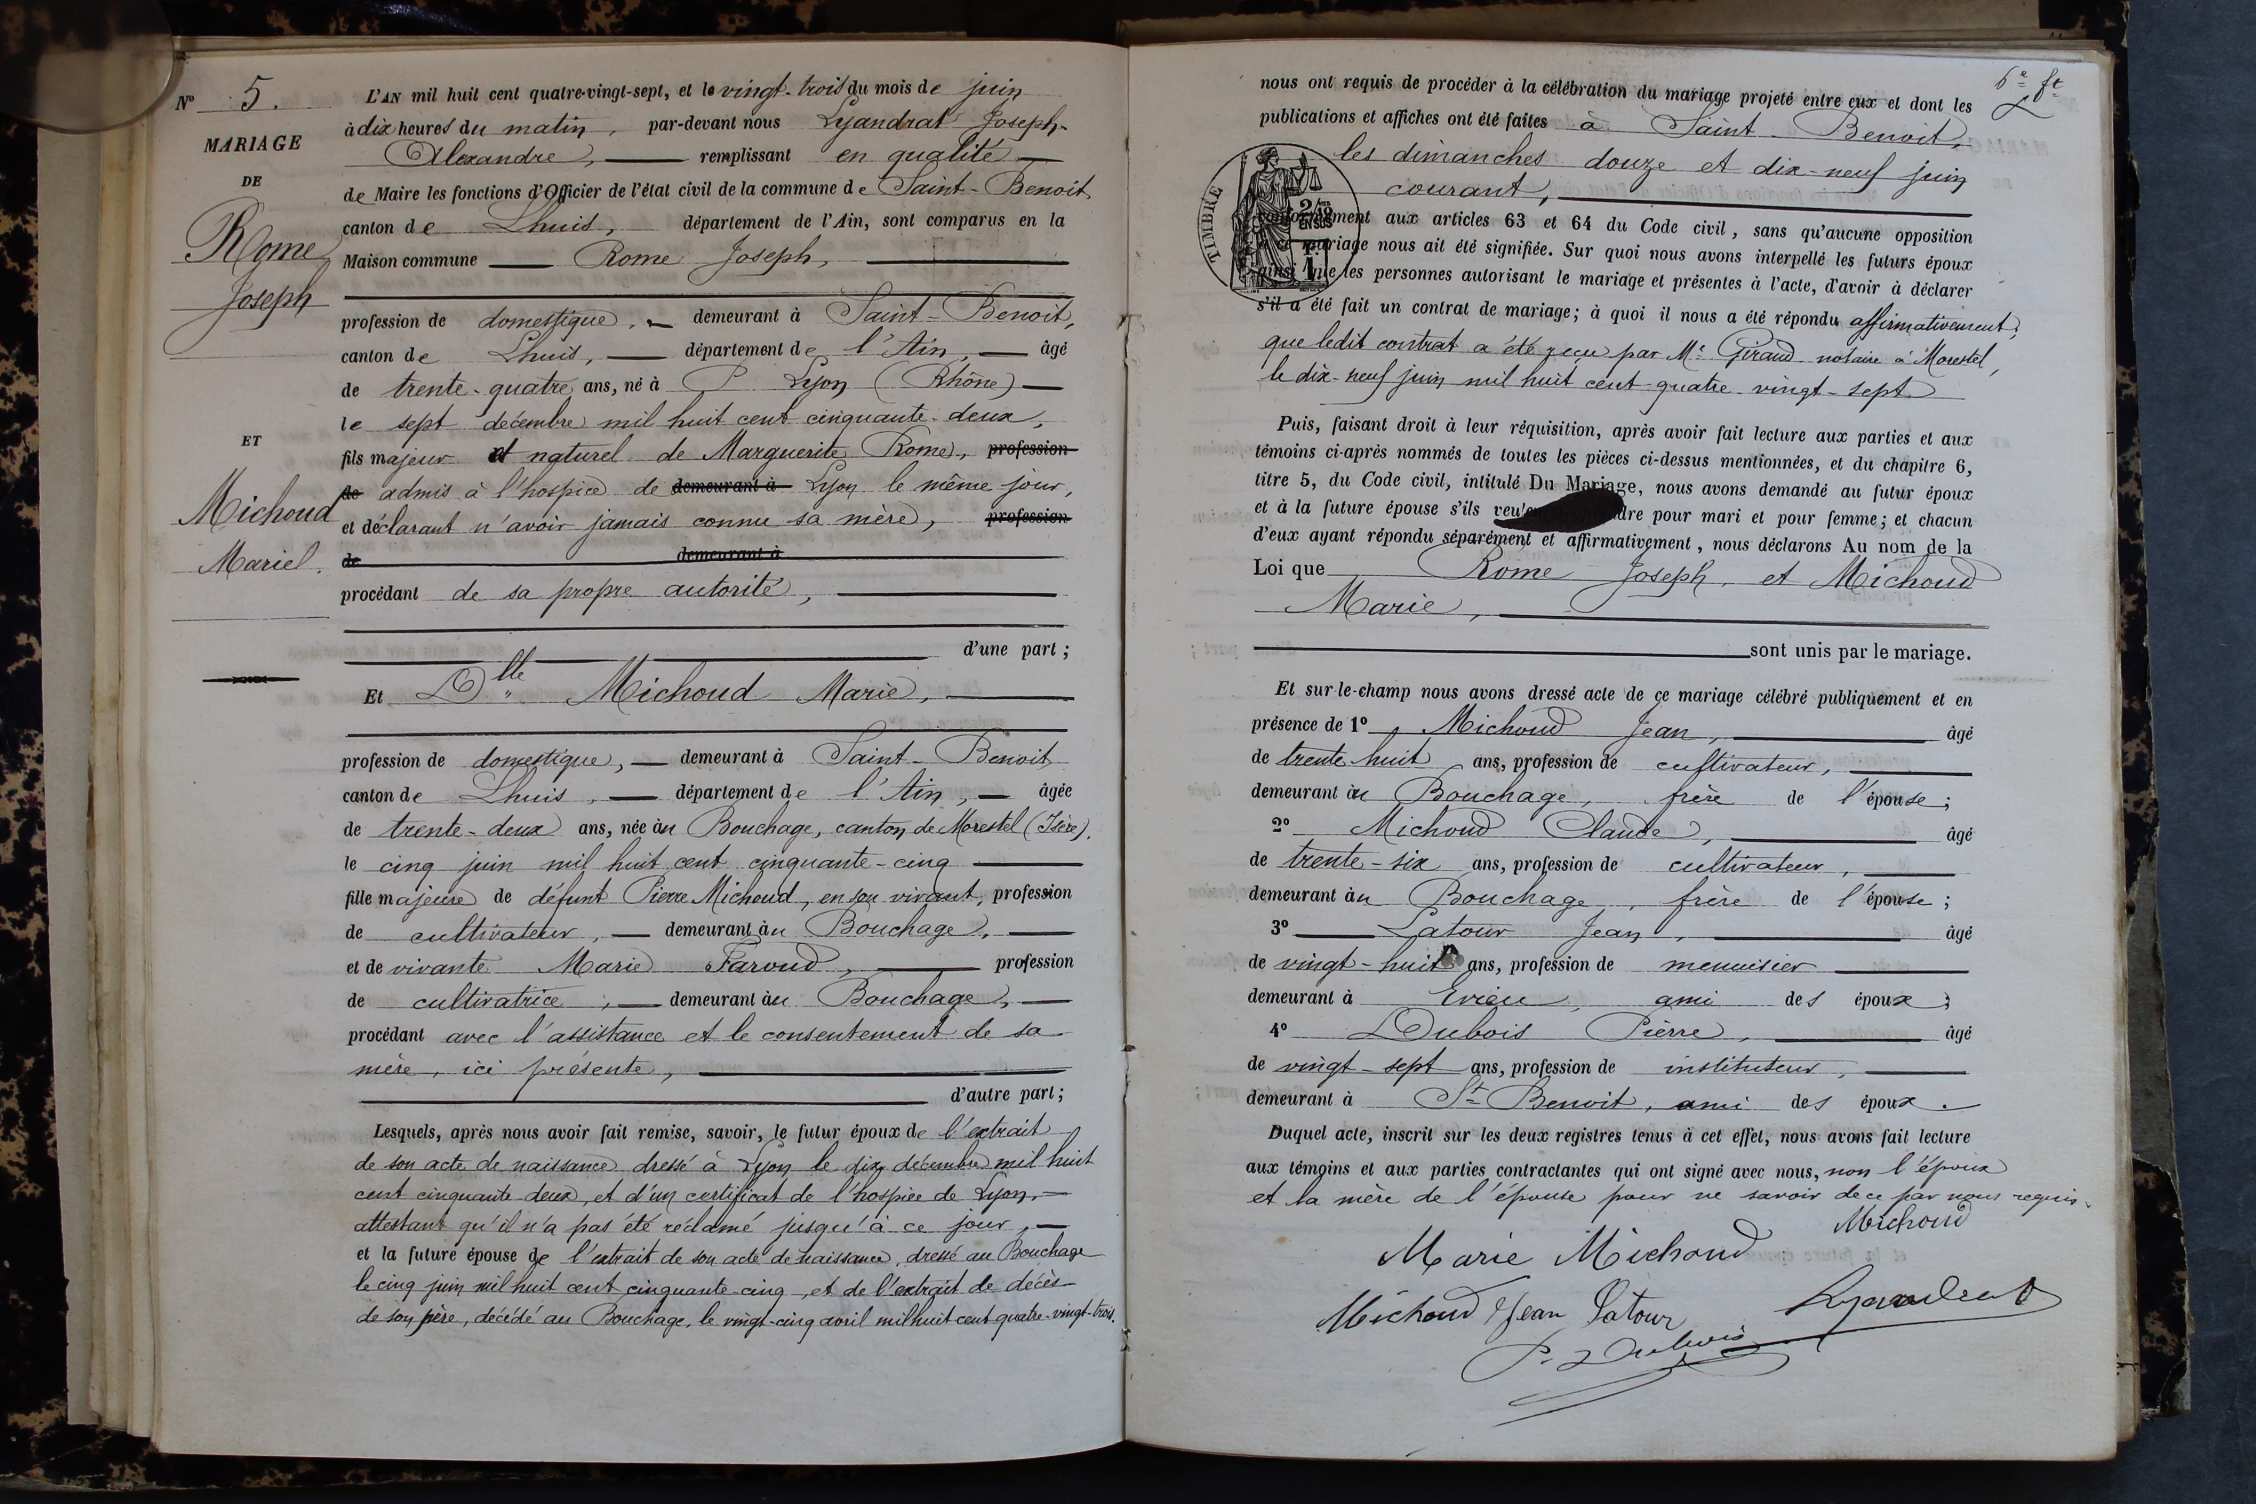 N° 5.
MARIAGE
DE
Rome
Joseph
ET
Michoud
Marie.
L'AN mil huit cent quatre-vingt-sept, et le vingt-trois du mois de juin
à dix heures du matin, par-devant nous Lyandrat Joseph-
Alexandre, remplissant en qualité
de Maire les fonctions d'Officier de l'état civil de la commune de Saint-Benoit,
canton de Lhuis, département de l'Ain, sont comparus en la
Maison commune Rome Joseph,
profession de domestique, demeurant à Saint-Benoit,
canton de Lhuis, département de l'Ain, âgé
de trente-quatre ans, né à Lyon (Rhône)
le sept décembre mil huit cent cinquante-deux,
fils majeur et naturel de Marguerite Rome, profession
de admis à l'hospice de demeurant à Lyon le même jour,
et déclarant n'avoir jamais connu sa mère, profession
de demeurant à
procédant de sa propre autorité,
d'une part;
Et Dlle Michoud Marie,
profession de domestique, demeurant à Saint-Benoit
canton de Lhuis, département de l'Ain, âgée
de trente-deux ans, née au Bouchage, canton de Morestel (Isère).
le cinq juin mil huit cent cinquante-cinq
fille majeure de défunt Pierre Michoud, en son vivant, profession
de cultivateur, demeurant au Bouchage,
et de vivante Marie Faroud, profession
de cultivatrice, demeurant au Bouchage,
procédant avec l'assistance et le consentement de sa
mère, ici présente,
d'autre part;
Lesquels, après nous avoir fait remise, savoir, le futur époux de l'extrait
de son acte de naissance dressé à Lyon le dix décembre mil huit
cent cinquante-deux, et d'un certificat de l'hospice de Lyon,
attestant qu'il n'a pas été réclamé jusqu'à ce jour,
et la future épouse de l'extrait de son acte de naissance, dressé au Bouchage
le cinq juin mil huit cent cinquante-cinq, et de l'extrait de décès
de son père, décédé au Bouchage, le vingt-cinq avril mil huit cent quatre-vingt-trois.
6e ft
nous ont requis de procéder à la célébration du mariage projeté entre eux et dont les
publications et affiches ont été faites à Saint-Benoit,
les dimanches douze et dix-neuf juin
courant,
TIMBRE
2/10 EN SUS
1F.
conformément aux articles 63 et 64 du Code civil, sans qu'aucune opposition
ce mariage nous ait été signifiée. Sur quoi nous avons interpellé les futurs époux
ainsi que les personnes autorisant le mariage et présentes à l'acte, d'avoir à déclarer
s'il a été fait un contrat de mariage; à quoi il nous a été répondu affirmativement,
que ledit contrat a été reçu par Me Giraud notaire à Morestel,
le dix-neuf juin mil huit cent quatre-vingt-sept
Puis, faisant droit à leur réquisition, après avoir fait lecture aux parties et aux
témoins ci-après nommés de toutes les pièces ci-dessus mentionnées, et du chapitre 6,
titre 5, du Code civil, intitulé Du Mariage, nous avons demandé au futur époux
et à la future épouse s'ils pour mari et pour femme; et chacun
d'eux ayant répondu séparément et affirmativement, nous déclarons Au nom de la
Loi que Rome Joseph, et Michoud
Marie,
sont unis par le mariage.
Et sur-le-champ nous avons dressé acte de ce mariage célébré publiquement et en
présence de 1° Michoud Jean, âgé
de trente-huit ans, profession de cultivateur,
demeurant au Bouchage, frère de l'épouse;
2° Michoud Claude, âgé
de trente-six ans, profession de cultivateur,
demeurant au Bouchage, frère de l'épouse;
3° Latour Jean, âgé
de vingt-huit ans, profession de menuisier
demeurant à Evieu, ami des époux;
4° Dubois Pierre, âgé
de vingt-sept ans, profession de instituteur,
demeurant à St Benoit, ami des époux.
Duquel acte, inscrit sur les deux registres tenus à cet effet, nous avons fait lecture
aux témoins et aux parties contractantes qui ont signé avec nous, non l'époux
et la mère de l'épouse pour ne savoir de ce par nous requis.
Michoud
Marie Michoud
Michoud Jean Latour Lyandrat
P. Dubois